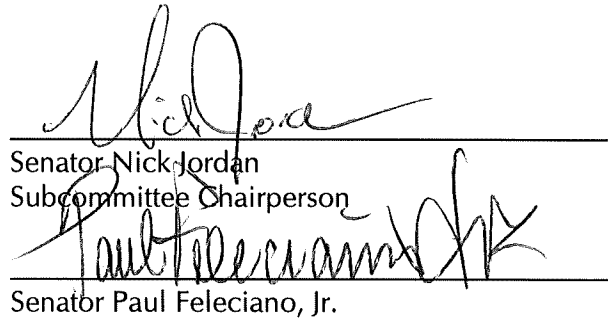 Nick Jordan
Senator Nick Jordan
Subcommittee Chairperson
Paul Feleciano Jr
Senator Paul Feleciano, Jr.